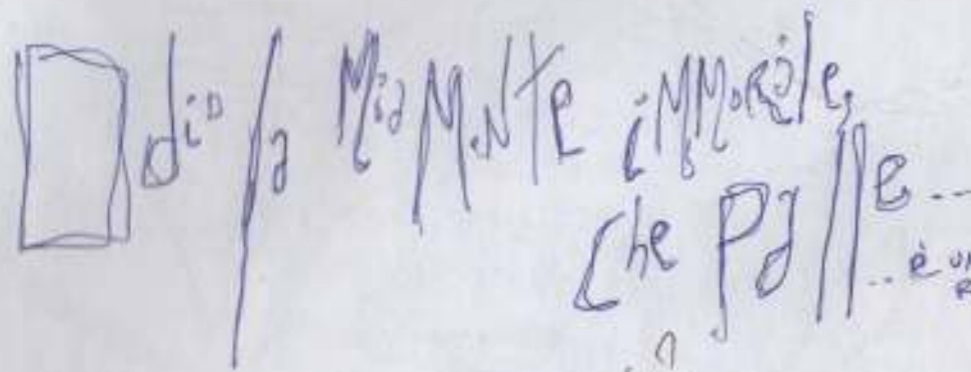 Odio la mia mente immorale,
che palle...
..è un